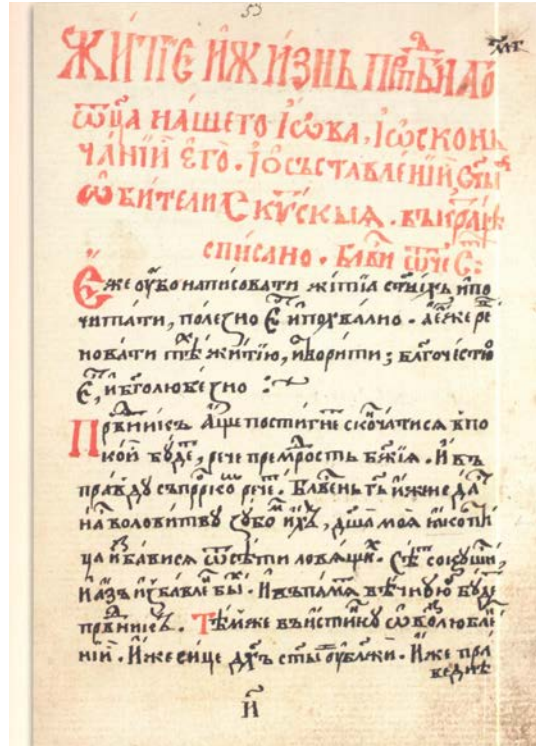 53
мг
ЖИТІЕ И ЖИЗНЬ ПРПⷣБНАГО
ѿца нашего Іѡва, І ѡ сконь
чанїи єго. І ѡ съставленїи ст҃ыѧ
ѡбители Скиⷮскыѧ. въкраⷮцѣ
списано. бл҃ви ѿче
Єже ѹбо написовати житїѧ ст҃ыихъ и по
читати, полеꙁно є҆ и похвално. а є҆же ре
новати житїю, и творити; бл҃гочестно
Є҆, и б҃голюбеꙁно :~
Праⷣвникъ аще постигне скончатисѧ въ по
кои бꙋде, рече премⷣрость бж҃їѧ. И въ
правдꙋ съ прⷪ҇рко рече. бл҃вень гь иже не да
на ловитвꙋ ꙁꙋбо ихъ, дш҃а моѧ ꙗко пти
ца иꙁбависѧ ѿ сѣти ловѧщиⷯ. сѣⷮ сокрꙋши,
и аꙁъ иꙁбавле бы. И въ памѧ вѣчнꙋю бꙋде
првⷣникъ. Тѣмже въистинꙋ ѡ воꙁлюбле
нїи. Иже сице дх҃ъ ст҃ы ѹблажи. Иже пра
веднѣ
и҃